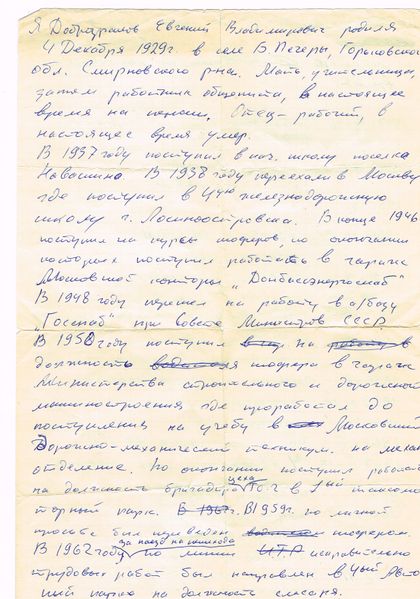 Я Добронравов Евгений Владимирович родился
4 Декабря 1929г. в селе В. Печеры, Горьковской
обл. Смирновского р-на. Мать, учительница,
затем работник общепита, в настоящее
время на пенсии. Отец - рабочий, в
настоящее время умер.
В 1937 году поступил в нач. школу поселка
Навашина. В 1938 году переехали в Москву
где поступил в 4ую железнодорожную
школу г. Лосиноостровска. В конце 1946
поступил на курсы шоферов, по окончании
которых поступил работать в гараж
Московской конторы „Донбассэнергоснаб"
В 1948 году перешел на работу в а/базу
„Госснаб" при Совете Министров СССР.
В 1950 году поступил на работу в
должность шофера в гараж
Министерства строительного и дорожного
машиностроения где проработал до
поступления на учебу в Московский
Дорожно-механический техникум. на мехак
отделение. По окончании поступил работать
на должность бригадира цеха в 1ый таксомо
торный парк. В 1967г. В 1959г. по личной
просьбе был переведен шофером.
за наезд на пешехода
В 1962 году по линии ИТР исправительно
трудовых работ был направлен в 4ый Авто
ный парк на должность слесаря.